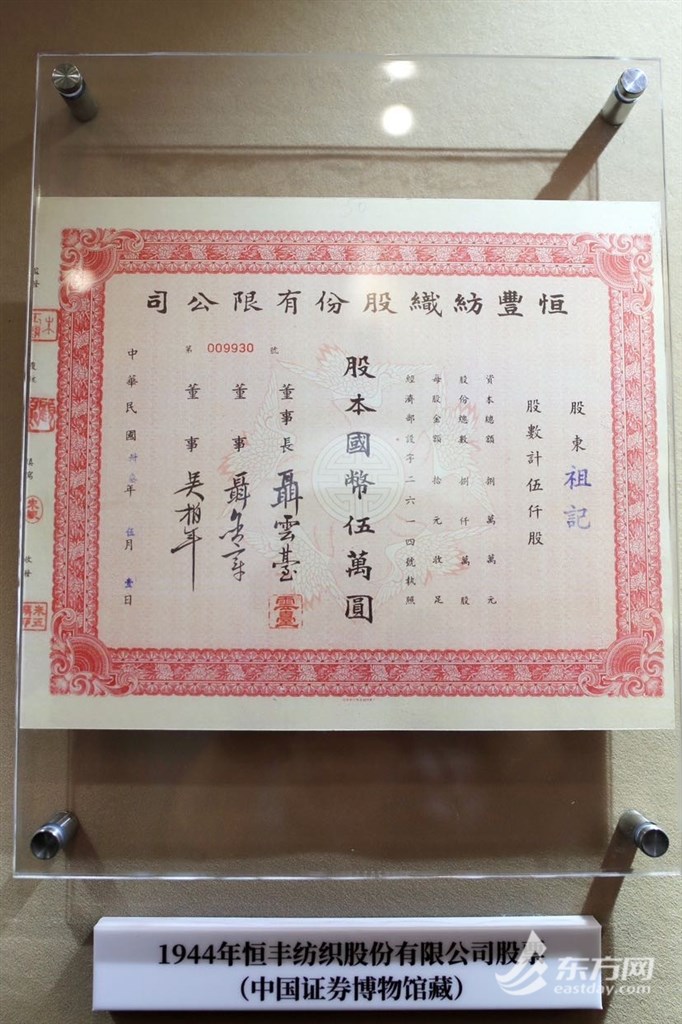 恒豐紡織股份有限公司
第 009930 號
股東 祖記
股數計伍仟股
資本總額 捌萬萬元
股份總數 捌仟萬股
每股金額 拾元收足
經濟部設字二六一四號執照
股本國幣伍萬圓
董事長 聶雲臺
雲臺
董事 聶
董事 吳柏年
中華民國 年 伍月 壹日
1944年恒丰纺织股份有限公司股票
(中国证券博物馆藏)
东方网
eastday.com